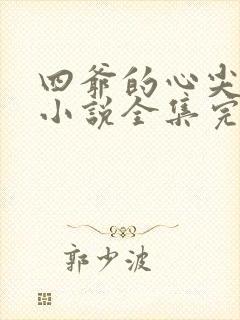 四爷的心尖
小说全集完
郭少波